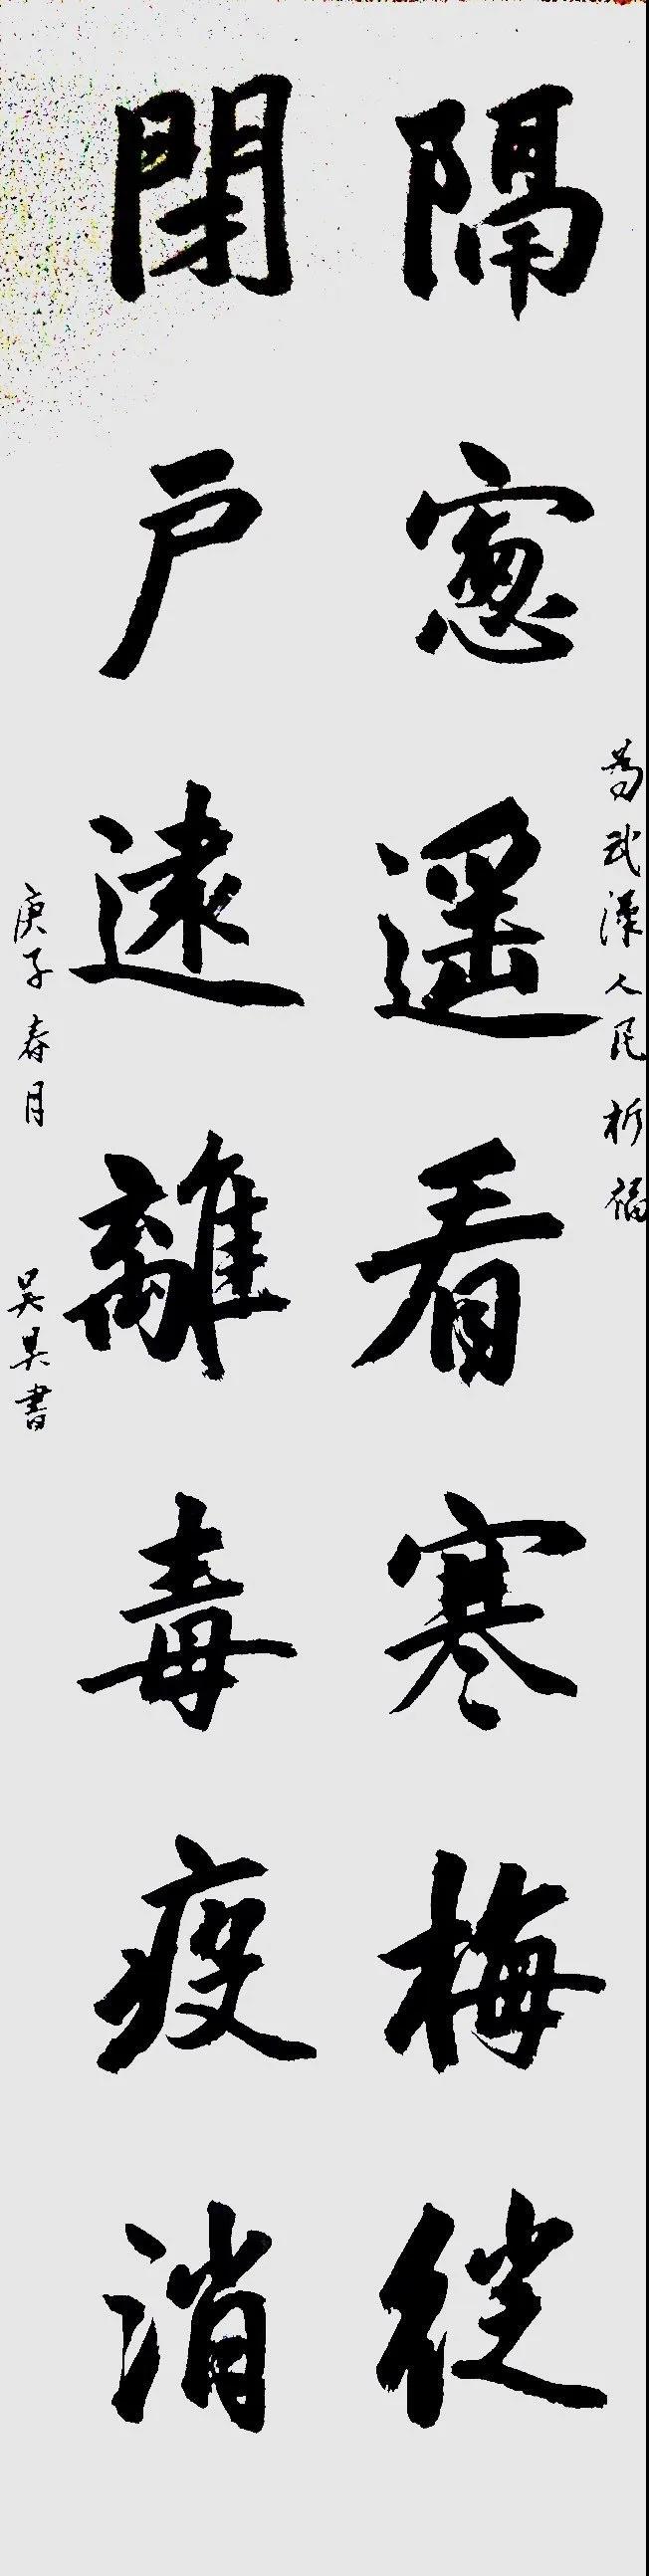 為武漢人民祈福
隔窻遥看寒梅從
閉户遠離毒疫消
庚子春月 吴昊書